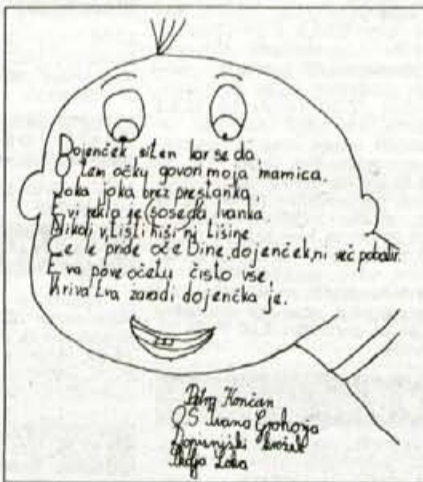 Dojenček siten kar se da,
O tem očku govori moja mamica.
Joka joka brez prestanka,
Evi rekla je soseda Ivanka.
Nikoli v tisti hiši ni tišine
Če le pride oče Dine, dojenček, ni več
Eva pove očetu čisto vse,
Kriva Eva zaradi dojenčka je.
Končan
OŠ Ivana Groharja
krožek
Škofja Loka